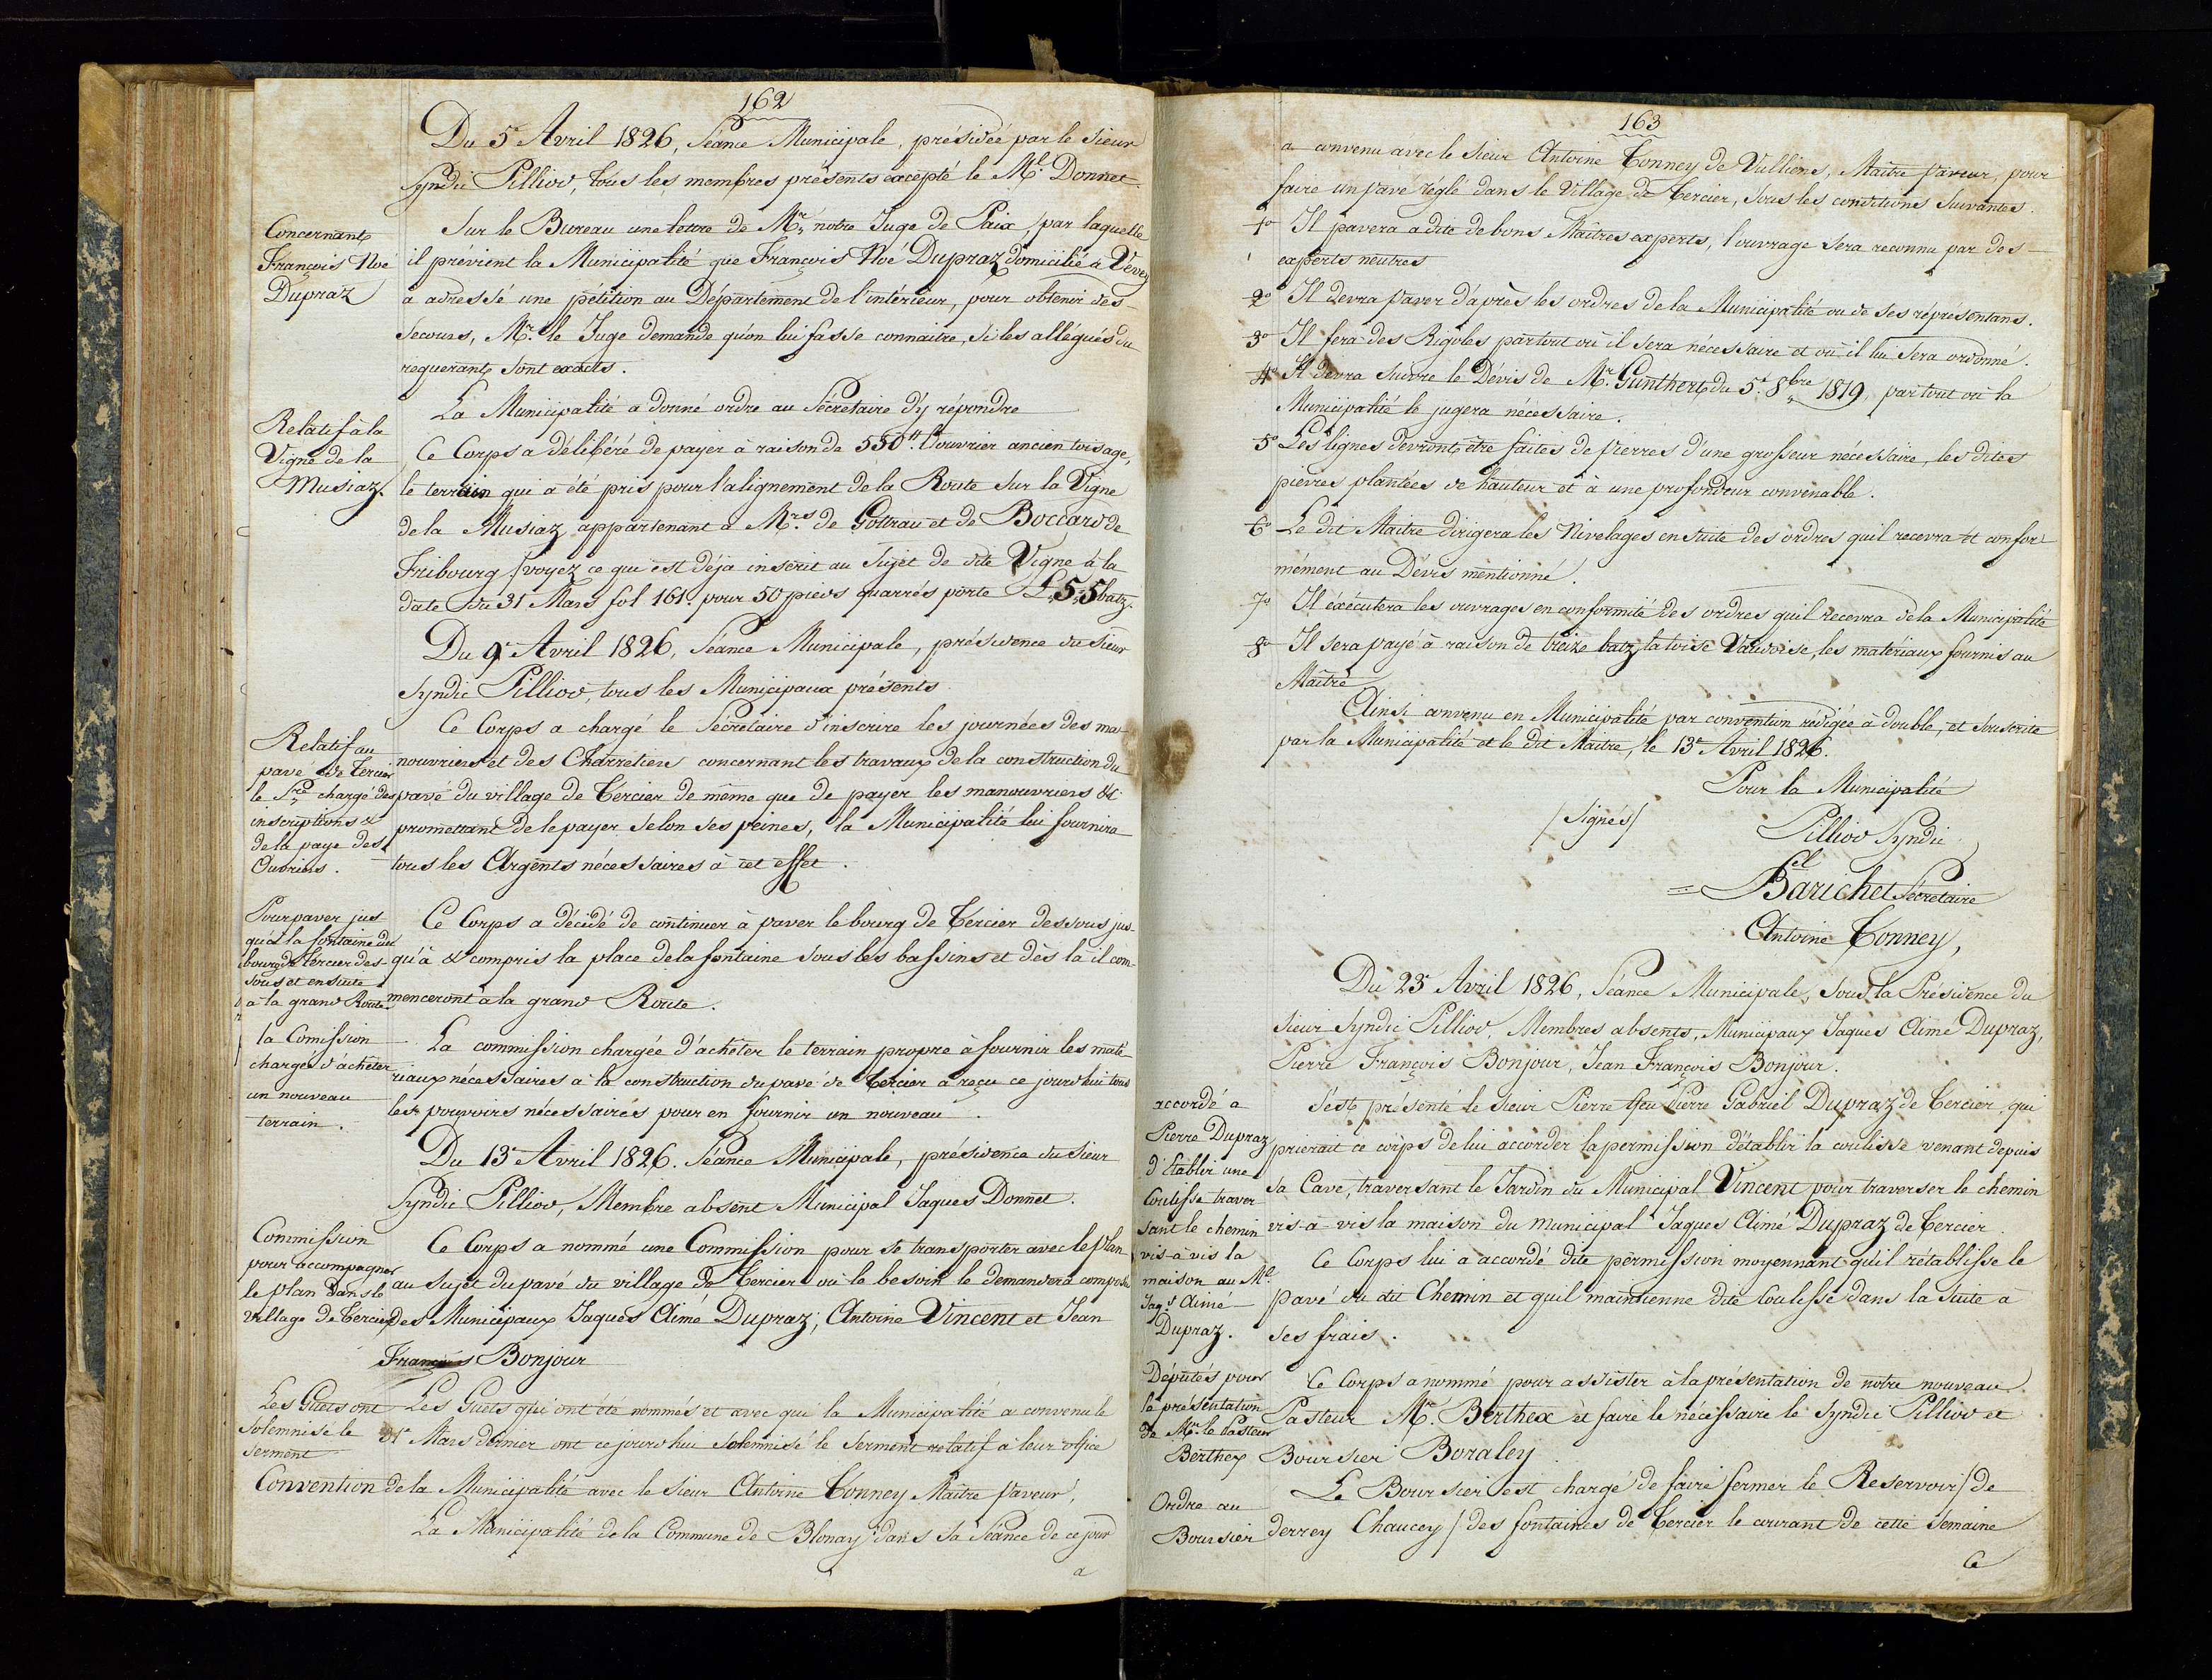 162
Du 5e Avril 1826, Séance Municipale, présidée par le Sieur
Syndic Pilliod, tous les membres présents excepté le Ml. Donnet.
Concernant
François Noé
Dupraz
Sur le Bureau une lettre de Mr. notre Juge de Paix, par laquelle
il prévient la Municipalité que François Noé Dupraz domicilié à Vevey
a adressé une pétition au Département de l'intérieur, pour obtenir des
Secours, Mr. le Juge demande qu'on lui fasse connaitre, si les allégués du
requerant sont exacts.
La Municipalité a donné ordre au Sécretaire d'y répondre
Relatif à la
Vigne de la
Musiaz.
Ce Corps a délibéré de payer à raison de 550 ff. l'ouvrier ancien toisage,
le terrain qui a été pris pour l'alignement de la Route sur la Vigne
de la Musiaz appartenant à Mrs. de Gottrau et de Boccard de
Fribourg /voyez ce qui est déja inscrit au Sujet de dite Vigne à la
date du 31 Mars fol 161. pour 50 pieds quarrés porte L. 5 " 5 batz.
Du 9e Avril 1826, Séance Municipale, présidence du Sieur
Syndic Pilliod, tous les Municipaux présents
Relatif au
pavé de Tercier
le Sre chargé des
inscriptions &
de la paye des
Ouvriers.
Ce Corps a chargé le Sécretaire d'inscrire les journées des ma-
nouvriers et des Charretiers concernant les travaux de la construction du
pavé du village de Tercier de même que de payer les manouvriers &c
promettant de le payer selon ses peines, la Municipalité lui fournira
tous les Argents nécessaires à cet effet.
Pour paver jus
qu'à la fontaine du
bourg de Tercier des-
sous et ensuite
à la grand Route
Ce Corps a décidé de continuer à paver le bourg de Tercier dessous jus-
qu'à & compris la place de la fontaine sous les bassins et dès là il com-
menceront à la grand Route.
la Comission
chargée d'acheter
un nouveau
terrain.
La commission chargée d'acheter le terrain propre à fournir les maté-
riaux nécessaires à la construction du pavé de Tercier a reçu ce jourd'hui tous
les pouvoirs nécessaires pour en fournir un nouveau.
Du 13e Avril 1826. Séance Municipale, présidence du Sieur
Syndic Pilliod, Membre absent Municipal Jaques Donnet.
Commission
pour accompagner
le plan dans le
village de Tercier
Ce Corps a nommé une Commission pour se transporter avec le plan
au sujet du pavé du village de Tercier où le besoin le demandera composée
des Municipaux Jaques Aimé Dupraz, Antoine Vincent et Jean
François Bonjour
Les Guets ont
solemnisé le
serment
Les Guets qui ont été nommés et avec qui la Municipalité a convenu le
31e Mars dernier ont ce jourd'hui solemnisé le serment relatif à leur office
Convention de la Municipalité avec le Sieur Antoine Tonney Maître Paveur,
La Municipalité de la Commune de Blonay dans sa Séance de ce jour
a
163
a convenu avec le Sieur Antoine Tonney de Vulliens, Maître Paveur, pour
faire un pavé réglé dans le Village de Tercier, sous les conditions suivantes.
1o Il pavera à dite de bons Maîtres experts, l'ouvrage sera reconnu par des
experts neutres
2o Il devra paver d'après les ordres de la Municipalité ou de ses réprésentans.
3o Il fera des Rigoles partout où il sera nécessaire et où il lui sera ordonné.
4o Il devra suivre le Dévis de Mr. Gunthert du 5e 8bre 1819, partout où la
Municipalité le jugera nécessaire.
5o Les lignes devront être faites de pierres d'une grosseur nécessaire, les dites
pierres plantées de hauteur et à une profondeur convenable.
6o Le dit Maitre dirigera les Nivelages ensuite des ordres qu'il recevra et confor
mément au Dévis mentionné.
7o Il éxécutera les ouvrages en conformité des ordres qu'il recevra de la Municipalité
8o Il sera payé à raison de treize batz la toise Vaudoise, les matériaux fournis au
Maitre
Ainsi convenu en Municipalité par convention rédigée à double, et souscrite
par la Municipalité et le dit Maitre, le 13e Avril 1826.
Pour la Municipalité
/Signés/ Pilliod Syndic
= Barichet Sécretaire
Antoine Tonney,
Du 23e Avril 1826, Séance Municipale, sous la Présidence du
Sieur Syndic Pilliod, Membres absents, Municipaux Jaques Aimé Dupraz,
Pierre François Bonjour, Jean François Bonjour.
accordé à
Pierre Dupraz
d'établir une
Coulisse traver
sant le chemin
vis-à vis la
maison au Ml.
Jaqs Aimé
Dupraz.
S'est présenté le Sieur Pierre feu Pierre Gabriel Dupraz de Tercier, qui
prierait ce corps de lui accorder la permission d'établir la coulisse venant depuis
sa Cave, traversant le Jardin du Municipal Vincent pour traverser le chemin
vis-à-vis la maison du municipal Jaques Aimé Dupraz de Tercier
Ce Corps lui a accordé dite permission moyennant qu'il rétablisse le
pavé du dit Chemin et qu'il maintienne dite Coulisse dans la suite à
ses frais.
Députés pour
la présentation
de Mr. le Pasteur
Berthex
Ce Corps a nommé pour assister à la présentation de notre nouveau
Pasteur Mr. Berthex et faire le nécessaire le Syndic Pilliod et
Boursier Boraley.
Ordre au
Boursier
Le Boursier est chargé de faire fermer le Reservoir / de
derrey Chaucey / des fontaines de Tercier le courant de cette semaine
Ce